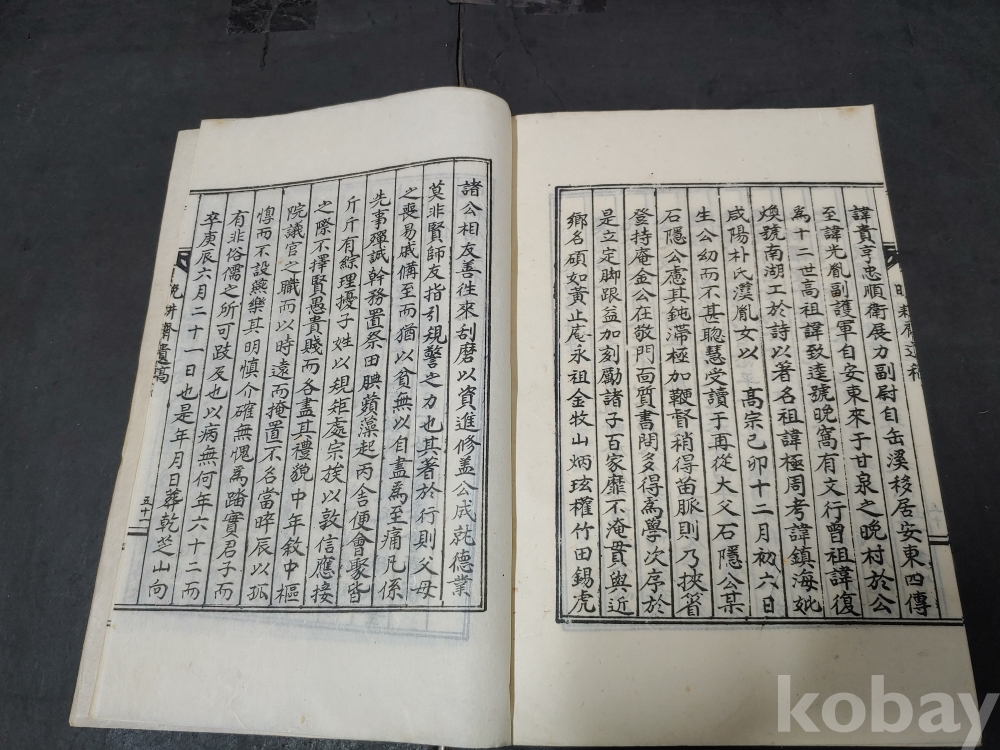 諱貴亨忠順衛展力副尉自缶溪移居安東四傳
至諱光胤副護軍自安東來于甘泉之晚村於公
爲十二世高祖諱致逵號晚窩有文行曾祖諱復
煥號南湖工於詩以著名祖諱極周考諱鎮海妣
咸陽朴氏漢胤女以 高宗己卯十二月初六日
生公幼而不甚聦慧受讀于再從大父石隱公某
石隱公憲其鈍滯極加鞭督稍得苗脈則乃挾筲
登持庵金公在敬門面質書問多得爲學次序於
是立定脚跟益加刻勵諸子百家靡不淹貫與近
鄉名碩如黃止庵永祖金牧山炳玹權竹田錫虎
諸公相友善徃來刮磨以資進修盖公成就德業
莫非賢師友指引規警之力也其著於行則父母
之喪易戚備至而猶以貧無以自盡爲至痛凡係
先事殫誠幹務置祭田腆蘋藻起丙舍便會聚皆
斤斤有綜理擾子姓以規矩處宗族以敦信應接
之際不擇賢愚貴賤而各盡其禮貌中年敘中樞
院議官之職而以時遠而掩置不名當晬辰以孤
惸而不設燕樂其明慎介確無愧爲踏實君子而
有非俗儒之所可跂及也以病無何年六十二而
卒庚辰六月二十一日也是年月日葬乾芝山向
晚耕齋遺稿
五十一
kobay